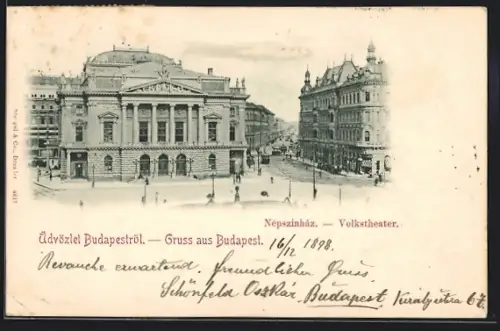 Népszinház. — Volkstheater.
Üdvözlet Budapestről. — Gruss aus Budapest. 16/12 1898.
Revanche erwartend. freundlichen Gruss,
Schönfeld Oszkár, Budapest, Király utca 67.